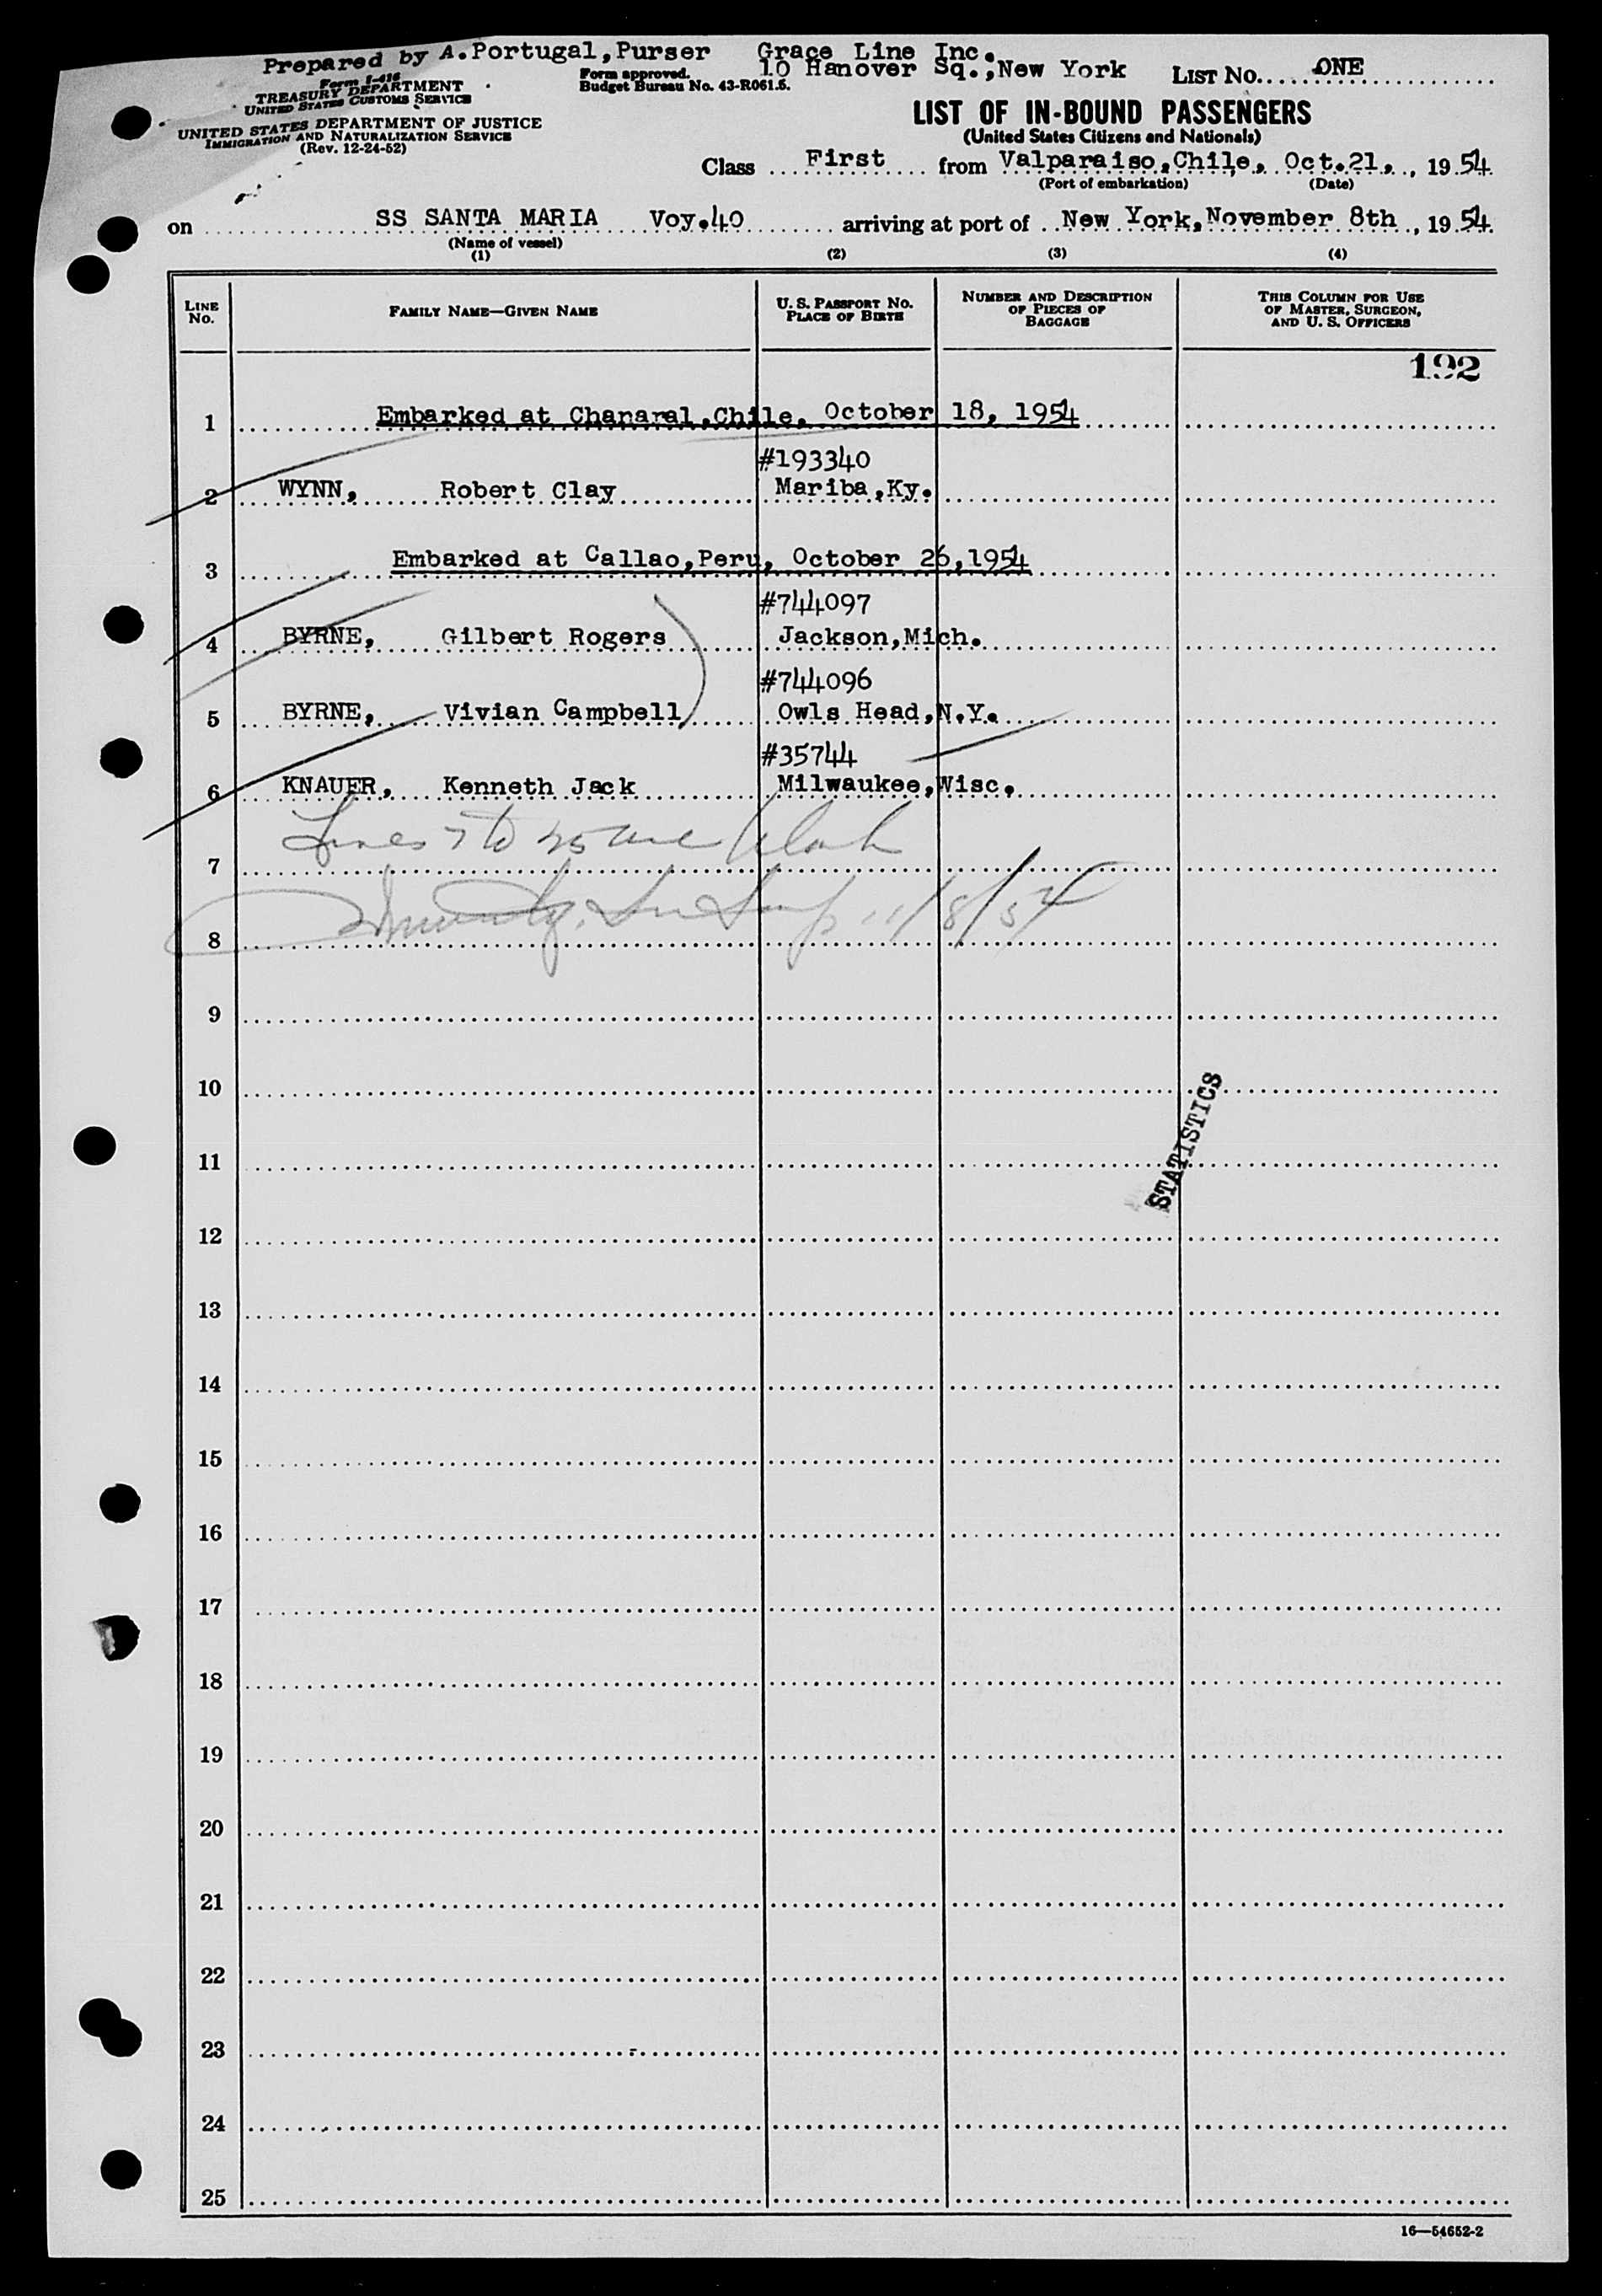 Prepared by A.Portugal,Purser Grace Line Inc.
10 Hanover Sq.,New York
Form I-416
TREASURY DEPARTMENT
UNITED STATES CUSTOMS SERVICE
Form approved.
Budget Bureau No. 43-R061.5.
LIST NO. ONE
UNITED STATES DEPARTMENT OF JUSTICE
IMMIGRATION AND NATURALIZATION SERVICE
(Rev. 12-24-52)
LIST OF IN-BOUND PASSENGERS
(United States Citizens and Nationals)
Class First from Valparaiso,Chile, Oct.21, , 19 54
(Port of embarkation) (Date)
on SS SANTA MARIA Voy.40 arriving at port of New York, November 8th , 19 54
(Name of vessel)
(1) (2) (3) (4)
LINE NO. FAMILY NAME—GIVEN NAME U. S. PASSPORT NO. PLACE OF BIRTH NUMBER AND DESCRIPTION OF PIECES OF BAGGAGE THIS COLUMN FOR USE OF MASTER, SURGEON, AND U. S. OFFICERS
192
1 Embarked at Chanaral,Chile, October 18, 1954
#193340
2 WYNN, Robert Clay Mariba,Ky.
3 Embarked at Callao,Peru, October 26,1954
#744097
4 BYRNE, Gilbert Rogers Jackson,Mich.
#744096
5 BYRNE, Vivian Campbell Owls Head,N.Y.
#35744
6 KNAUER, Kenneth Jack Milwaukee,Wisc.
Lines 7 to 25 are blank
7
11/8/54
8
9
10
STATISTICS
11
12
13
14
15
16
17
18
19
20
21
22
23
24
25
16—54652-2